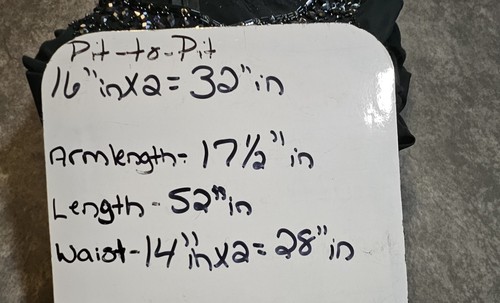 Pit-to-Pit
16"inX2=32"in
Armlength-17½"in
Length-52"in
Waist-14"inx2=28"in